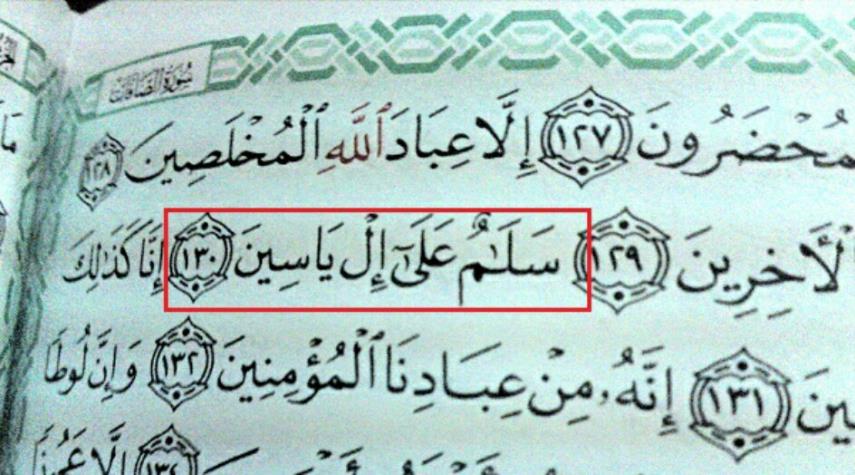 سُورَةُ الصَّافَّاتِ
مُحْضَرُونَ ١٢٧ إِلَّا عِبَادَ ٱللَّهِ ٱلْمُخْلَصِينَ ١٢٨
ٱلْأَخِرِينَ ١٢٩ سَلَٰمٌ عَلَىٰٓ إِلْ يَاسِينَ ١٣٠ إِنَّا كَذَٰلِكَ
١٣١ إِنَّهُۥ مِنْ عِبَادِنَا ٱلْمُؤْمِنِينَ ١٣٢ وَإِنَّ لُوطًا
١٣٤ إِلَّا عَجُوزًا